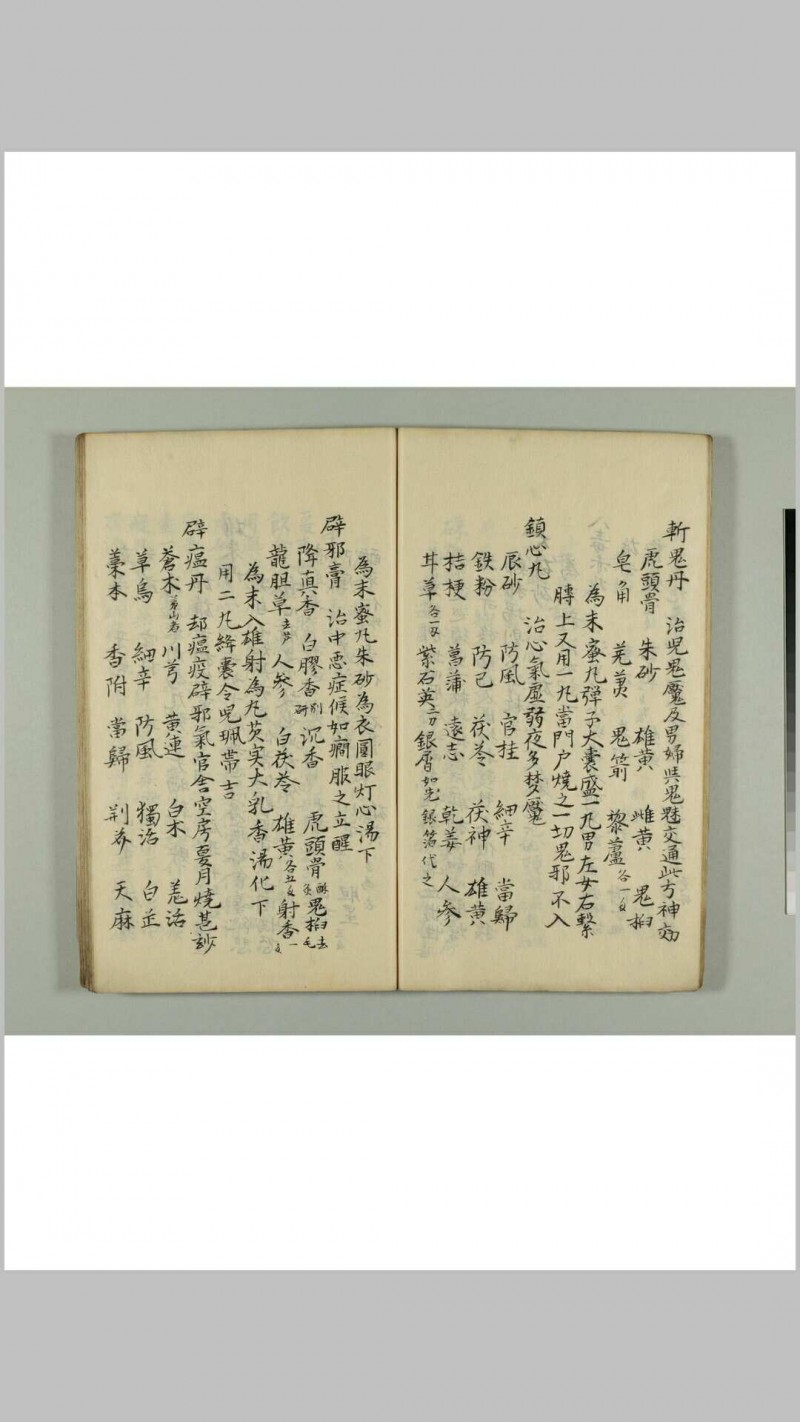 斬鬼丹　治児鬼魘及男婦與鬼魅交通此方神効
虎頭骨　朱砂　雄黄　雌黄　鬼臼
皂角　羌荑　鬼箭　黎蘆各一文
為末蜜丸弾子大囊盛一丸男左女右繫
膊上又用一丸當門戶燒之一切鬼邪不入
鎮心丸　治心氣虛弱夜多梦魘
辰砂　防風　官挂　細辛　當歸
鉄粉　防己　茯苓　茯神　雄黄
桔梗　菖蒲　遠志　乾姜　人參
甘草各一文　紫石英　銀屑如无銀箔代之
為末蜜丸朱砂為衣圓眼灯心湯下
辟邪膏　治中悪症候如癎服之立醒
降真香　白膠香別研　沉香　虎頭骨酥炙　鬼臼去毛
龍胆草去芦　人參　白茯苓　雄黄各五文　射香一文
為末入雄射為丸芡实大乳香湯化下
用二丸絳囊令児珮帯吉
辟瘟丹　却瘟疫辟邪氣官舎空房夏月燒甚玅
蒼朮茅山者　川芎　黄連　白朮　羌活
草烏　細辛　防風　獨活　白芷
藁本　香附　當歸　荊芥　天麻